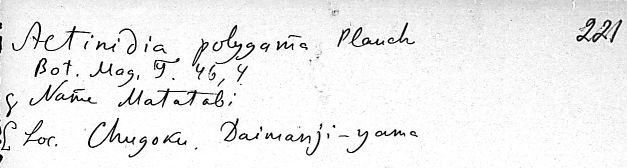 Actinidia polygama Planch 221
Bot. Mag. T. 46, 4
g Name Matatabi
Loc. Chugoku. Daimanji-yama